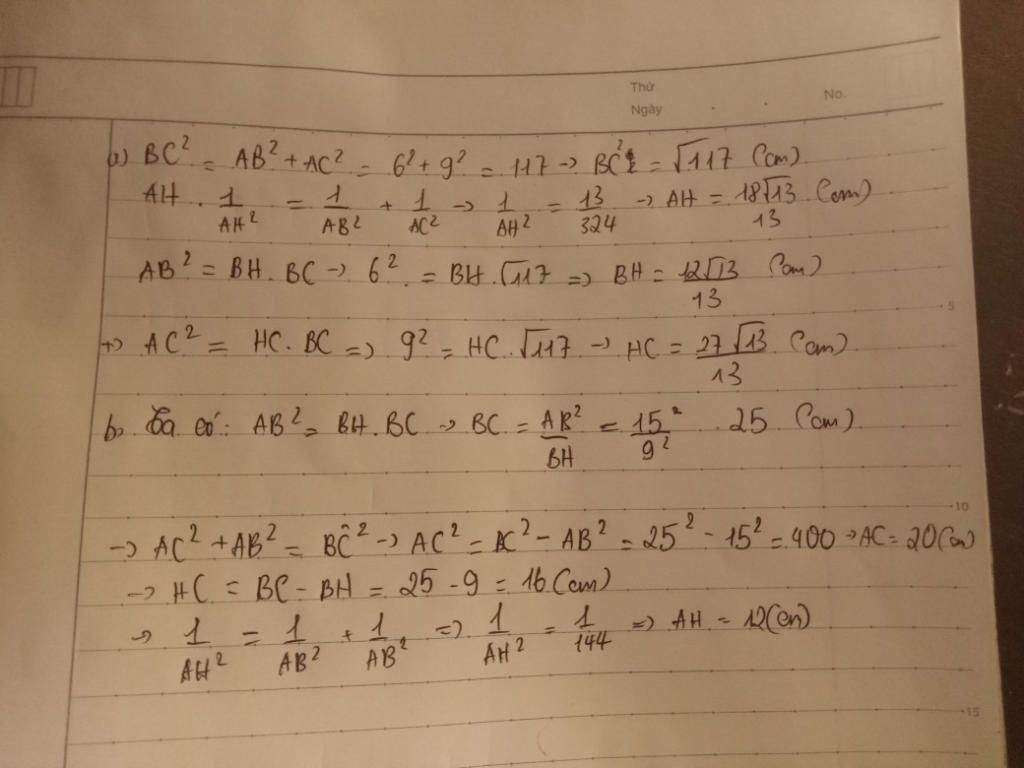 Thứ
Ngày
No.
a) BC² = AB² + AC² = 6² + 9² = 117 → BC² = √117 (cm)
AH . 1/AH² = 1/AB² + 1/AC² → 1/AH² = 13/324 → AH = 18√13/13 (cm)
AB² = BH . BC → 6² = BH . √117 => BH = 12√13/13 (cm)
5
+) AC² = HC . BC => 9² = HC . √117 → HC = 27√13/13 (cm)
b, Ta có: AB² = BH . BC → BC = AB²/BH = 15²/9² . 25 (cm)
10
→ AC² + AB² = BC² → AC² = BC² - AB² = 25² - 15² = 400 → AC = 20 (cm)
→ HC = BC - BH = 25 - 9 = 16 (cm)
→ 1/AH² = 1/AB² + 1/AB² => 1/AH² = 1/144 => AH = 12 (cm)
15